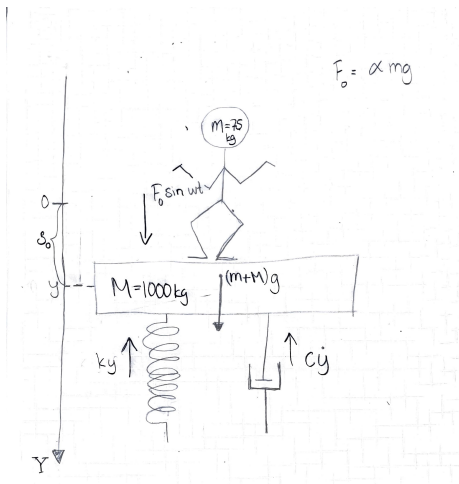 F₀ = αmg
M=75
kg
F₀ sin ωt
0
S₀
y
M=1000kg
(m+M)g
ky
cẏ
Y